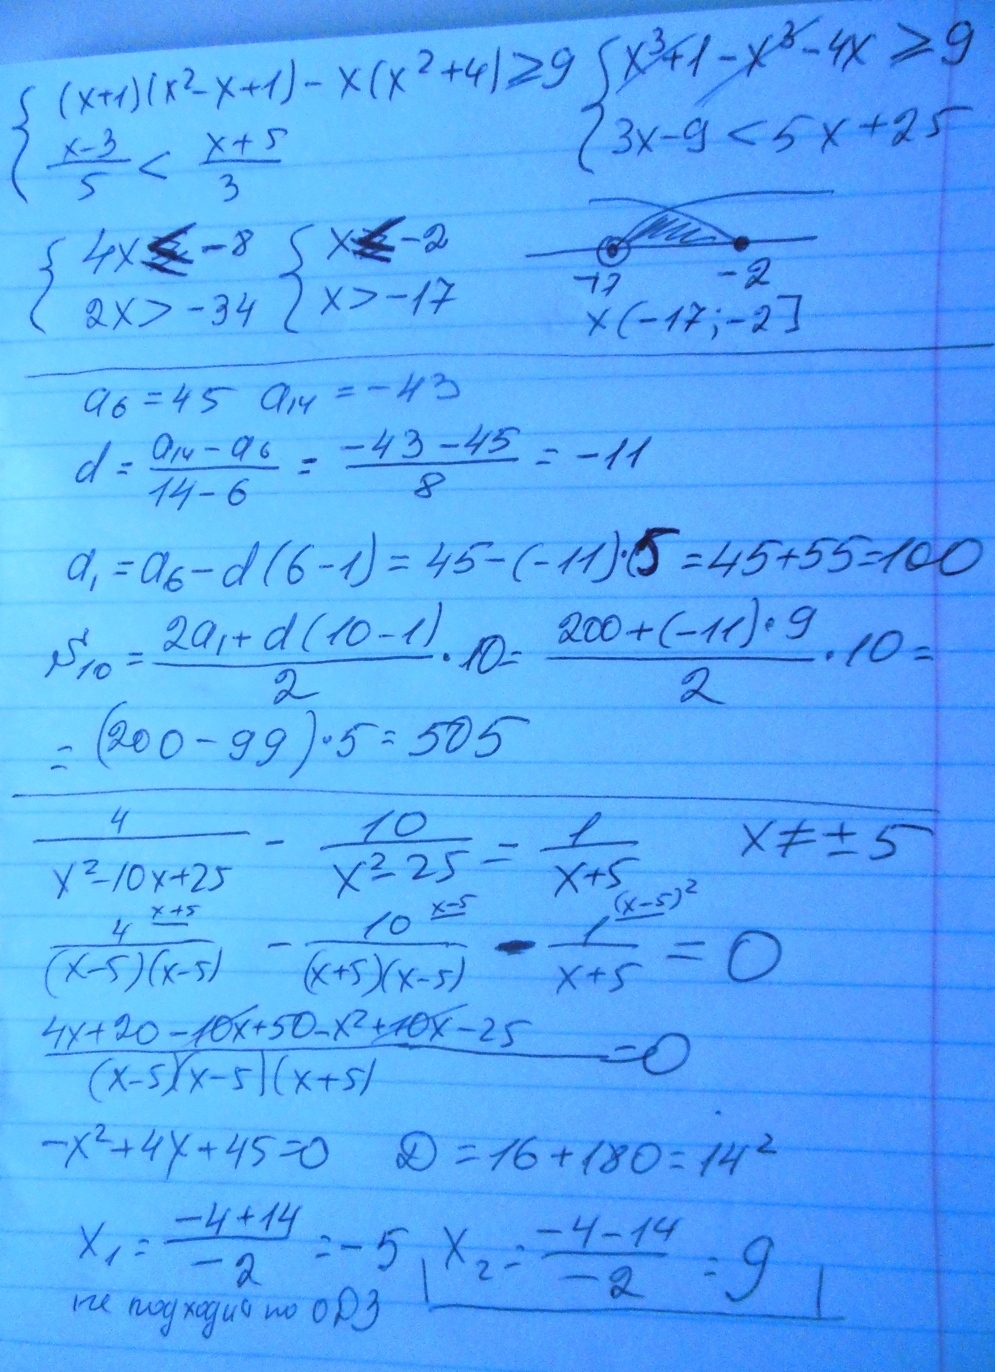 { (x+1)(x²-x+1) - x(x²+4) ≥ 9 { x³+1-x³-4x ≥ 9
(x-3)/5 < (x+5)/3 3x-9 < 5x+25
{ 4x ≤ -8 { x ≤ -2
2x > -34 x > -17
-17 -2
x(-17;-2]
a₆ = 45 a₁₄ = -43
d = (a₁₄ - a₆)/(14-6) = (-43-45)/8 = -11
a₁ = a₆ - d(6-1) = 45-(-11)·5 = 45+55=100
S₁₀ = (2a₁+d(10-1))/2 · 10 = (200+(-11)·9)/2 · 10 =
= (200-99)·5 = 505
4/(x²-10x+25) - 10/(x²-25) = 1/(x+5) x ≠ ± 5
4 (x+5)/((x-5)(x-5)) - 10 (x-5)/((x+5)(x-5)) - 1 (x-5)²/(x+5) = 0
(4x+20-10x+50-x²+10x-25)/((x-5)(x-5)(x+5)) = 0
-x²+4x+45=0 D = 16+180 = 14²
x₁ = (-4+14)/(-2) = -5 x₂ = (-4-14)/(-2) = 9
не подходит по ОДЗ